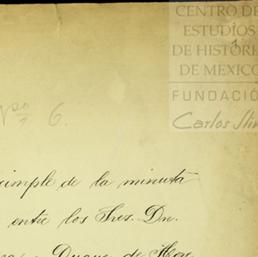 CENTRO DE
ESTUDIOS
DE HISTORI
DE MEXICO
FUNDACIÓ
Carlos Slim
6.
simple de la minuta
entre los Sres. Dn.
Duque de